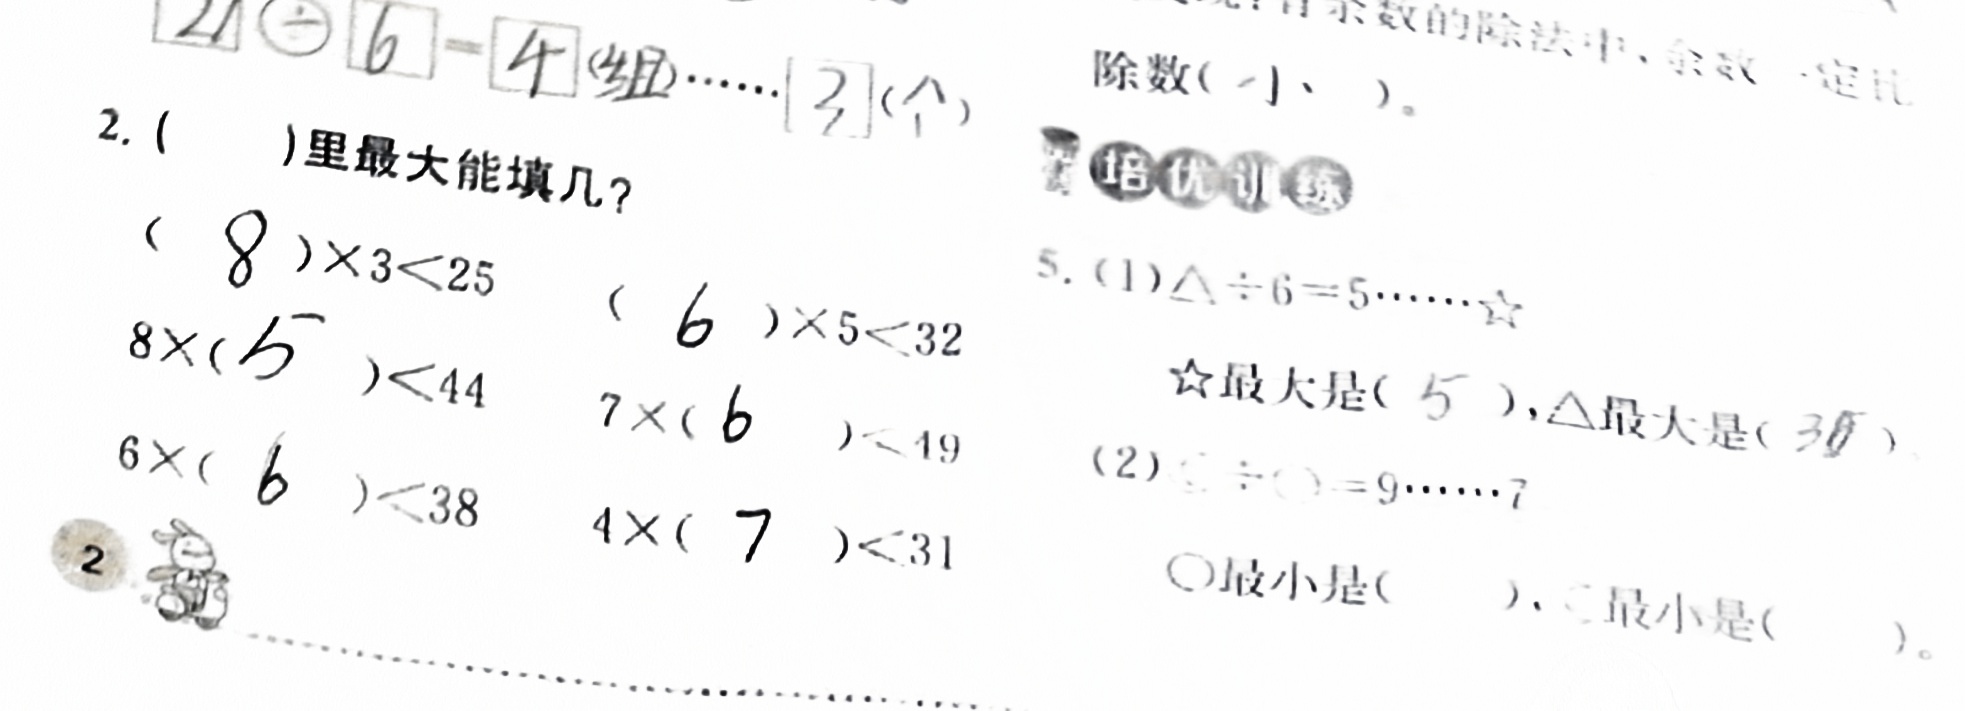 ÷ 6 = 4 (组)…… 3 (个)
2. (    )里最大能填几?
( 8 )×3<25
( 6 )×5<32
8×( 5 )<44
7×( 6 )<49
6×( 6 )<38
4×( 7 )<31
2
余数的除法中、余数一定比
除数( 小、 )。
培优训练
5. (1)△÷6=5……☆
☆最大是( 5 ),△最大是(      )
(2)    ÷○=9……7
○最小是(    )、    最小是(    )。